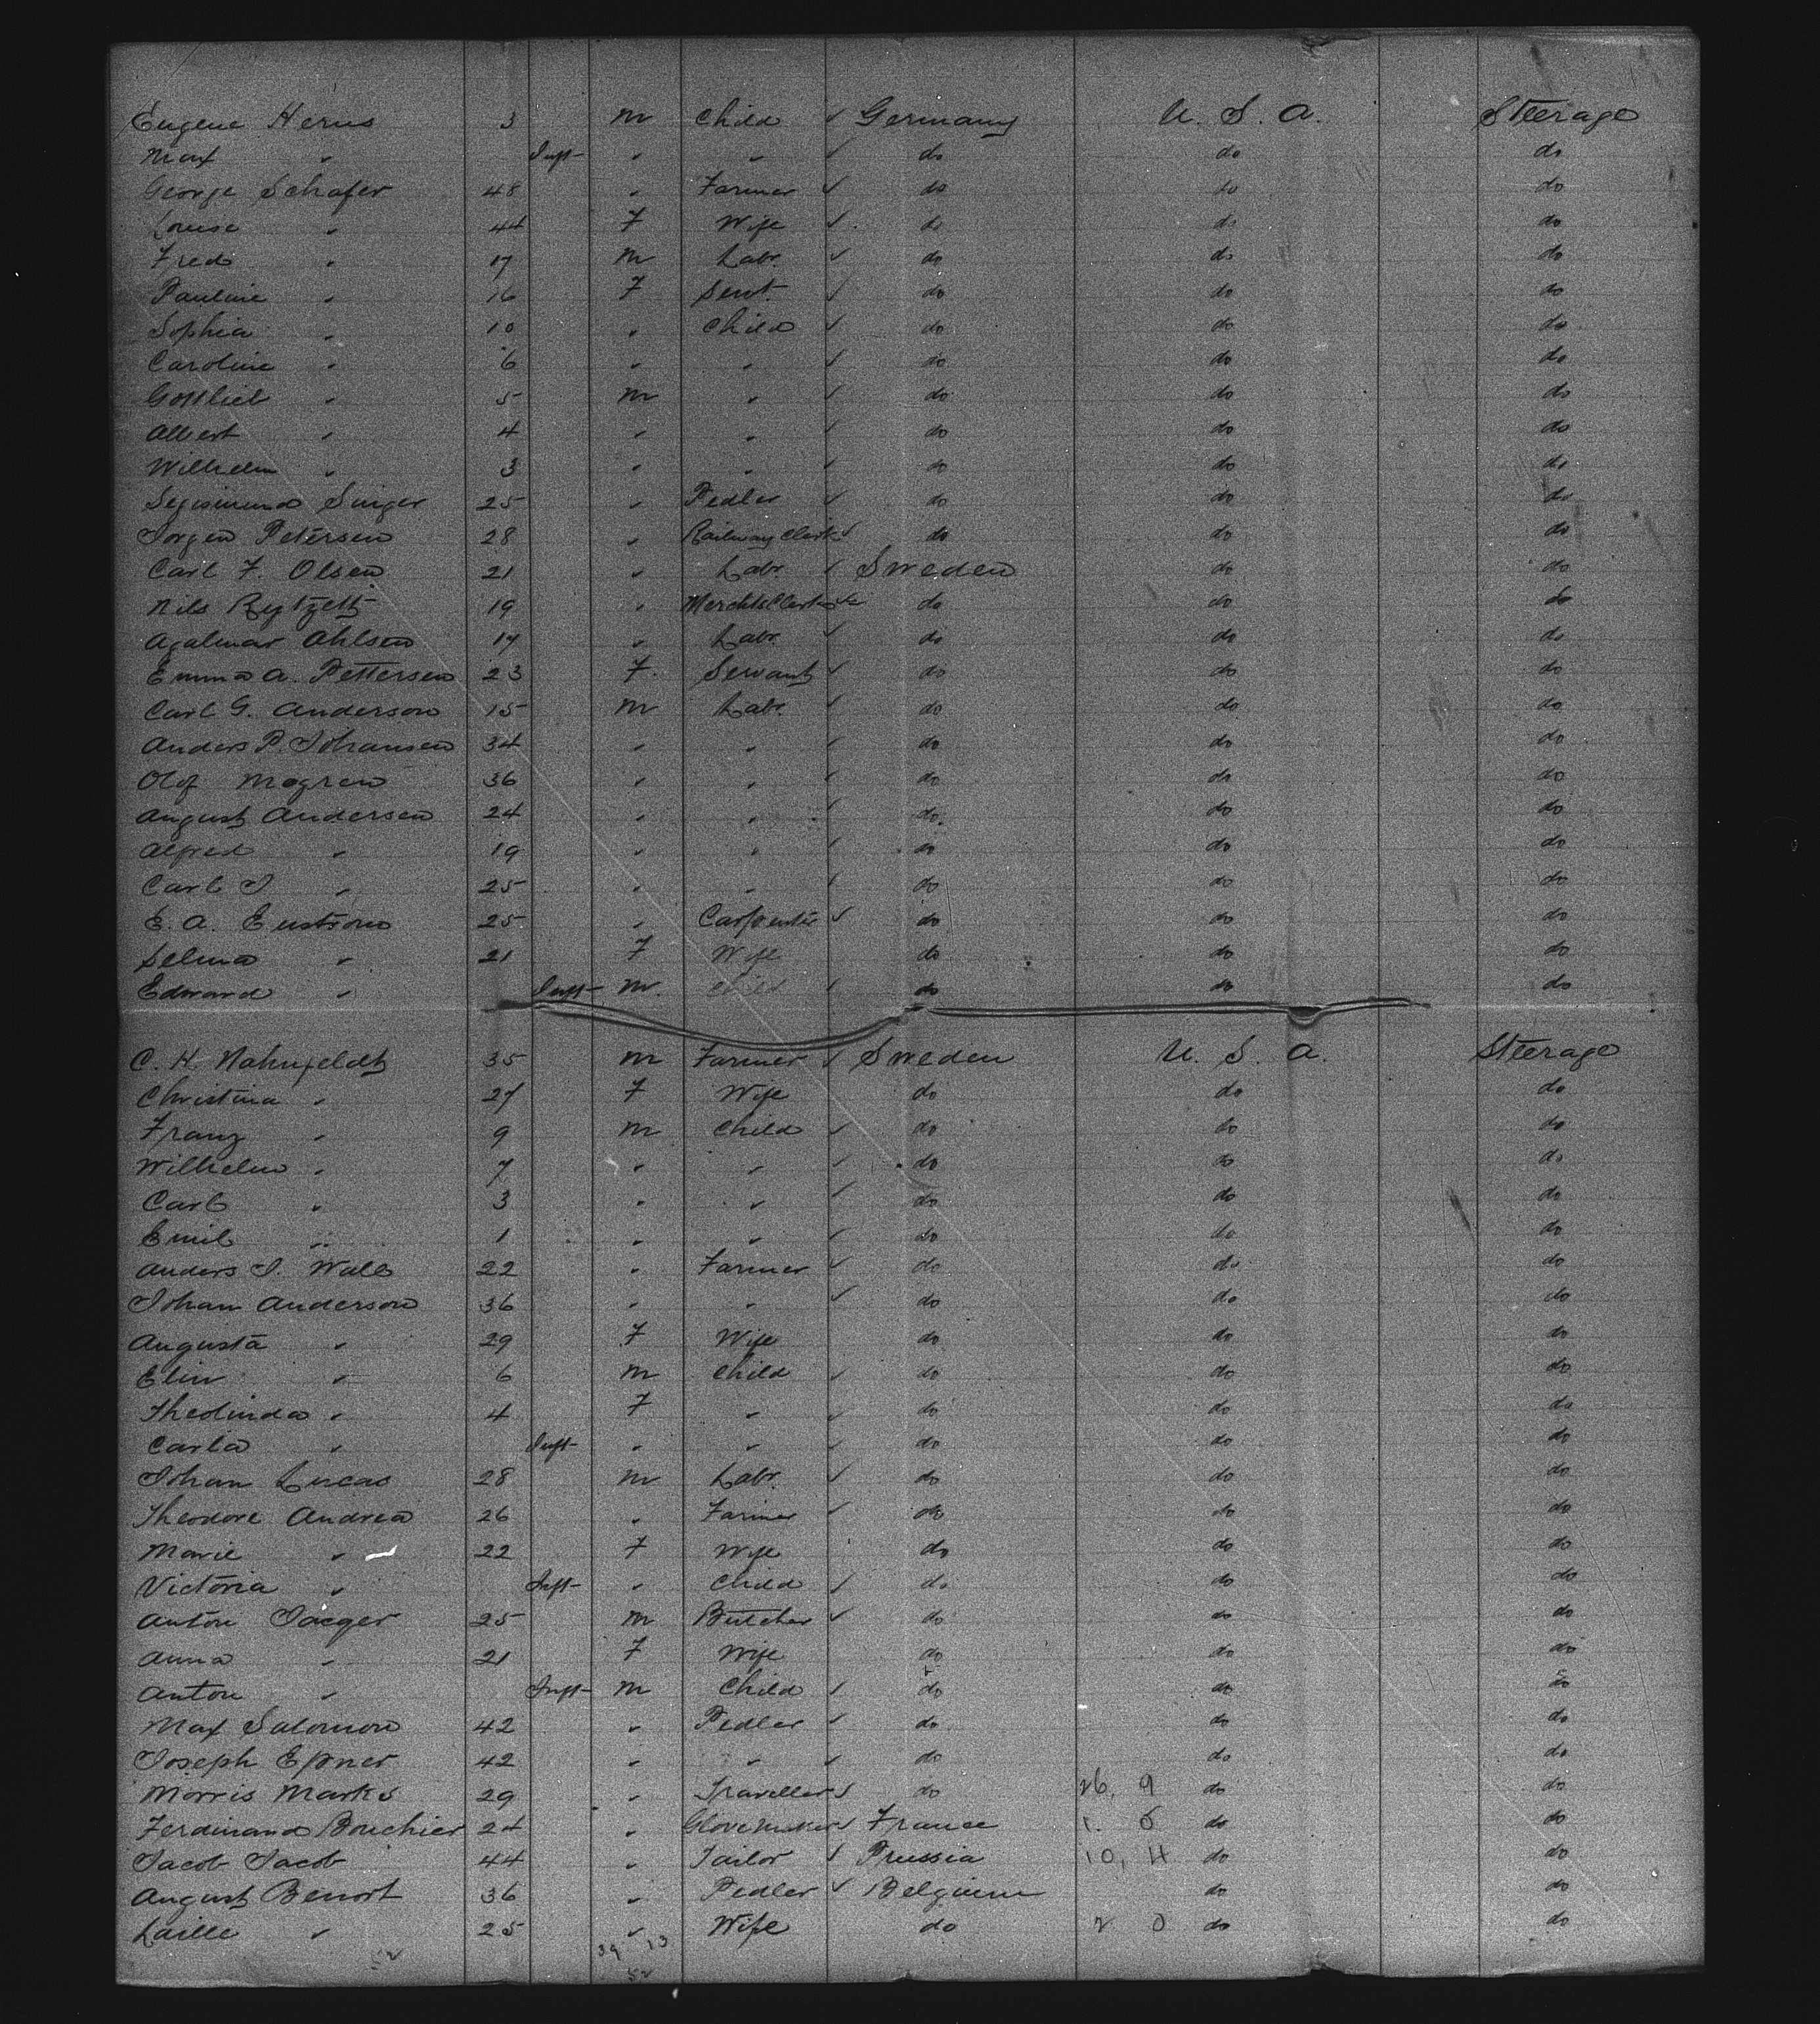 Eugene Herns 3 M Child ✓ Germany U. S. A. Steerage
Max " Inft " " ✓ do do do
George Schafer 48 " Farmer ✓ do do do
Louise " 44 F Wife ✓ do do do
Fred " 17 M Labr ✓ do do do
Pauline " 16 F Servt. ✓ do do do
Sophia " 10 " Child ✓ do do do
Caroline " 6 " " ✓ do do do
Gottlieb " 5 M " ✓ do do do
Albert " 4 " " ✓ do do do
Wilhelm " 3 " " ✓ do do do
Segismund Singer 25 " Pedler ✓ do do do
Jorgen Petersen 28 " Railway Clerk ✓ do do do
Carl F. Olsen 21 " Labr. ✓ Sweden do do
Nils 19 " Merchts Clerk ✓ do do do
Agalmar Ahlsen 17 " Labr ✓ do do do
Emma A. Pettersen 23 F. Servant ✓ do do do
Carl G. Anderson 15 M Labr. ✓ do do do
Anders P. Johansen 34 " " ✓ do do do
Olof Mogren 36 " " ✓ do do do
August Andersen 24 " " ✓ do do do
Alfred " 19 " " ✓ do do do
Carl J " 25 " " ✓ do do do
E. A. Enstrom 25 " Carpenter ✓ do do do
Selma " 21 F Wife do do do
Edward " Inft M. Child ✓ do do do
C. H. Nahnfeldt 35 M Farmer ✓ Sweden U. S. A. Steerage
Christina " 27 F Wife do do do
Franz " 9 M Child ✓ do do do
Wilhelm " 7 " " ✓ do do do
Carl " 3 " " ✓ do do do
Emil " 1 " " ✓ do do do
Anders J. Wall 22 " Farmer ✓ do do do
Johan Anderson 36 " " ✓ do do do
Augusta " 29 F Wife do do do
Elin " 6 M Child ✓ do do do
Theolinda " 4 F " ✓ do do do
Carla " Inft " " ✓ do do do
Johan Lucas 28 M Labr. ✓ do do do
Theodore Andrea 26 " Farmer ✓ do do do
Marie " 22 F Wife do do do
Victoria " Inft " Child ✓ do do do
Anton Jaeger 25 M Butcher ✓ do do do
Anna " 21 F Wife do do do
Anton " Inft M Child ✓ do do do
Max Salomon 42 " Pedler ✓ do do do
Joseph Epner 42 " " ✓ do do do
Morris Marks 29 " Traveller ✓ do 26, 9 do do
Ferdinand Bouchier 24 " Glovemaker ✓ France 1. 0 do do
Jacob Jacob 44 " Tailor ✓ Prussia 10, 4 do do
August Benort 36 " Pedler ✓ Belgium do do
Laille " 25 " Wife do 2 0 do do
39 13
52